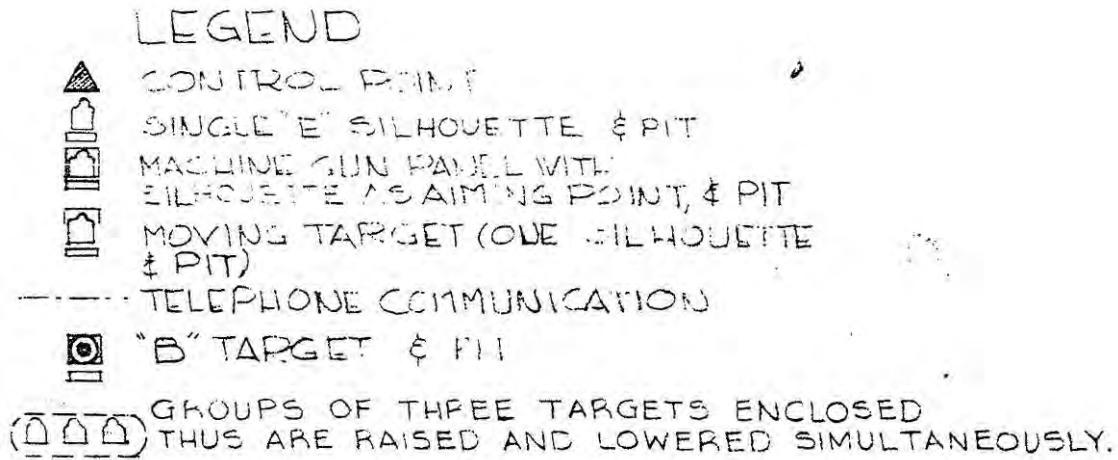 LEGEND
CONTROL POINT
SINGLE "E" SILHOUETTE & PIT
MACHINE GUN PANEL WITH
SILHOUETTE AS AIMING POINT, & PIT
MOVING TARGET (ONE SILHOUETTE
& PIT)
TELEPHONE COMMUNICATION
"B" TARGET & PIT
GROUPS OF THREE TARGETS ENCLOSED
THUS ARE RAISED AND LOWERED SIMULTANEOUSLY.